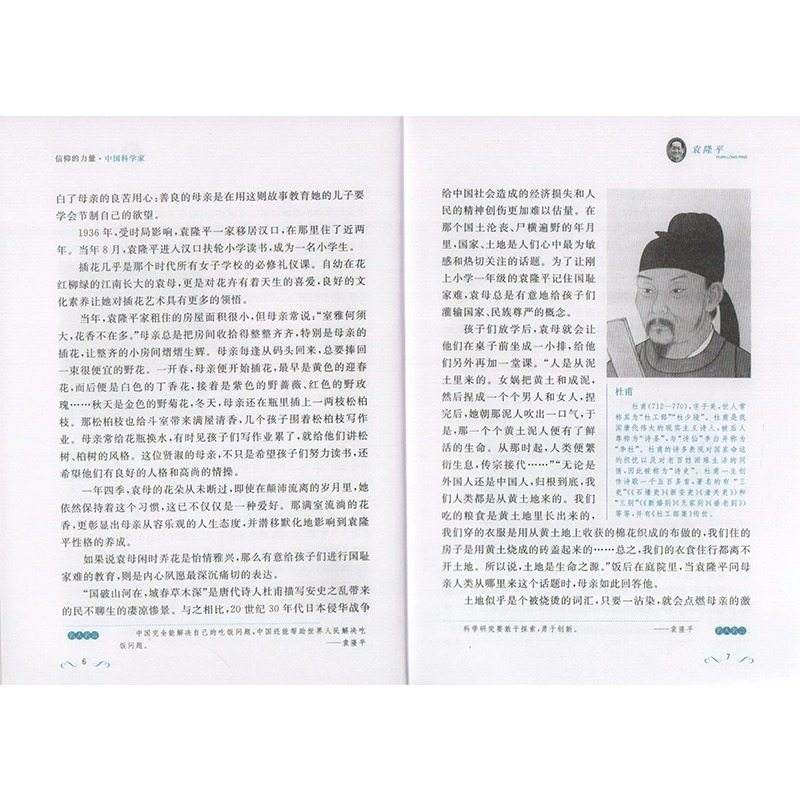 信仰的力量·中国科学家
白了母亲的良苦用心:善良的母亲是在用这则故事教育她的儿子要
学会节制自己的欲望。
1936年,受时局影响,袁隆平一家移居汉口,在那里住了近两
年。当年8月,袁隆平进入汉口扶轮小学读书,成为一名小学生。
插花几乎是那个时代所有女子学校的必修礼仪课。自幼在花
红柳绿的江南长大的袁母,更是对花卉有着天生的喜爱,良好的文
化素养让她对插花艺术具有更多的领悟。
当年,袁隆平家租住的房屋面积很小,但母亲常说:“室雅何须
大,花香不在多。”母亲总是把房间收拾得整整齐齐,特别是母亲的
插花,让整齐的小房间熠熠生辉。母亲每逢从码头回来,总要捧回
一束很便宜的野花。一开春,母亲便开始插花,最早是黄色的迎春
花,而后便是白色的丁香花,接着是紫色的野蔷薇、红色的野玫
瑰……秋天是金色的野菊花,冬天,母亲还在瓶里插上一两枝松柏
枝。那松柏枝也给斗室带来满屋清香,几个孩子围着松柏枝写作
业。母亲常给花瓶换水,有时见孩子们写作业累了,就给他们讲松
树、柏树的风格。这位贤淑的母亲,不只是希望孩子们努力读书,还
希望他们有良好的人格和高尚的情操。
一年四季,袁母的花朵从未断过,即使在颠沛流离的岁月里,她
依然保持着这个习惯,这已不仅仅是一种爱好。那满室流淌的花
香,更彰显出母亲从容乐观的人生态度,并潜移默化地影响到袁隆
平性格的养成。
如果说袁母闲时弄花是怡情雅兴,那么有意给孩子们进行国耻
家难的教育,则是内心夙愿最深沉痛切的表达。
“国破山河在,城春草木深”是唐代诗人杜甫描写安史之乱带来
的民不聊生的凄凉惨景。与之相比,20世纪30年代日本侵华战争
名人名言
中国完全能解决自己的吃饭问题,中国还能帮助世界人民解决吃
饭问题。
——袁隆平
6
袁隆平
YUAN LONG PING
给中国社会造成的经济损失和人
民的精神创伤更加难以估量。在
那个国土沦丧、尸横遍野的年月
里,国家、土地是人们心中最为敏
感和热切关注的话题。为了让刚
上小学一年级的袁隆平记住国耻
家难,袁母总是有意地给孩子们
灌输国家、民族尊严的概念。
孩子们放学后,袁母就会让
他们在桌子前坐成一小排,给他
们另外再加一堂课。“人是从泥
土里来的。女娲把黄土和成泥,
然后捏成一个个男人和女人,捏
完后,她朝那泥人吹出一口气,于
是,那一个个黄土泥人便有了鲜
活的生命。从那时起,人类便繁
衍生息,传宗接代……”“无论是
外国人还是中国人,归根到底,我
们人类都是从黄土地来的。我们
吃的粮食是黄土地里长出来的,
我们穿的衣服是用从黄土地上收获的棉花织成的布做的,我们住的
房子是用黄土烧成的砖盖起来的……总之,我们的衣食住行都离不
开土地。所以说,土地是生命之源。”饭后在庭院里,当袁隆平问母
亲人类从哪里来这个话题时,母亲如此回答他。
土地似乎是个被烧烫的词汇,只要一沾染,就会点燃母亲的激
杜甫
杜甫(712—770),字子美,世人常
称其为“杜工部”“杜少陵”。杜甫是我
国唐代伟大的现实主义诗人,被后人
尊称为“诗圣”,与“诗仙”李白并称为
“李杜”。杜甫的诗多表现对国家命运
的担忧以及对老百姓困难生活的同
情,因此被称为“诗史”。杜甫一生创
作诗歌一千五百多首,著名的有“三
吏”(《石壕吏》《新安吏》《潼关吏》)和
“三别”(《新婚别》《无家别》《垂老别》)
等等,并有《杜工部集》传世。
科学研究要敢于探索,勇于创新。
——袁隆平
名人名言
7